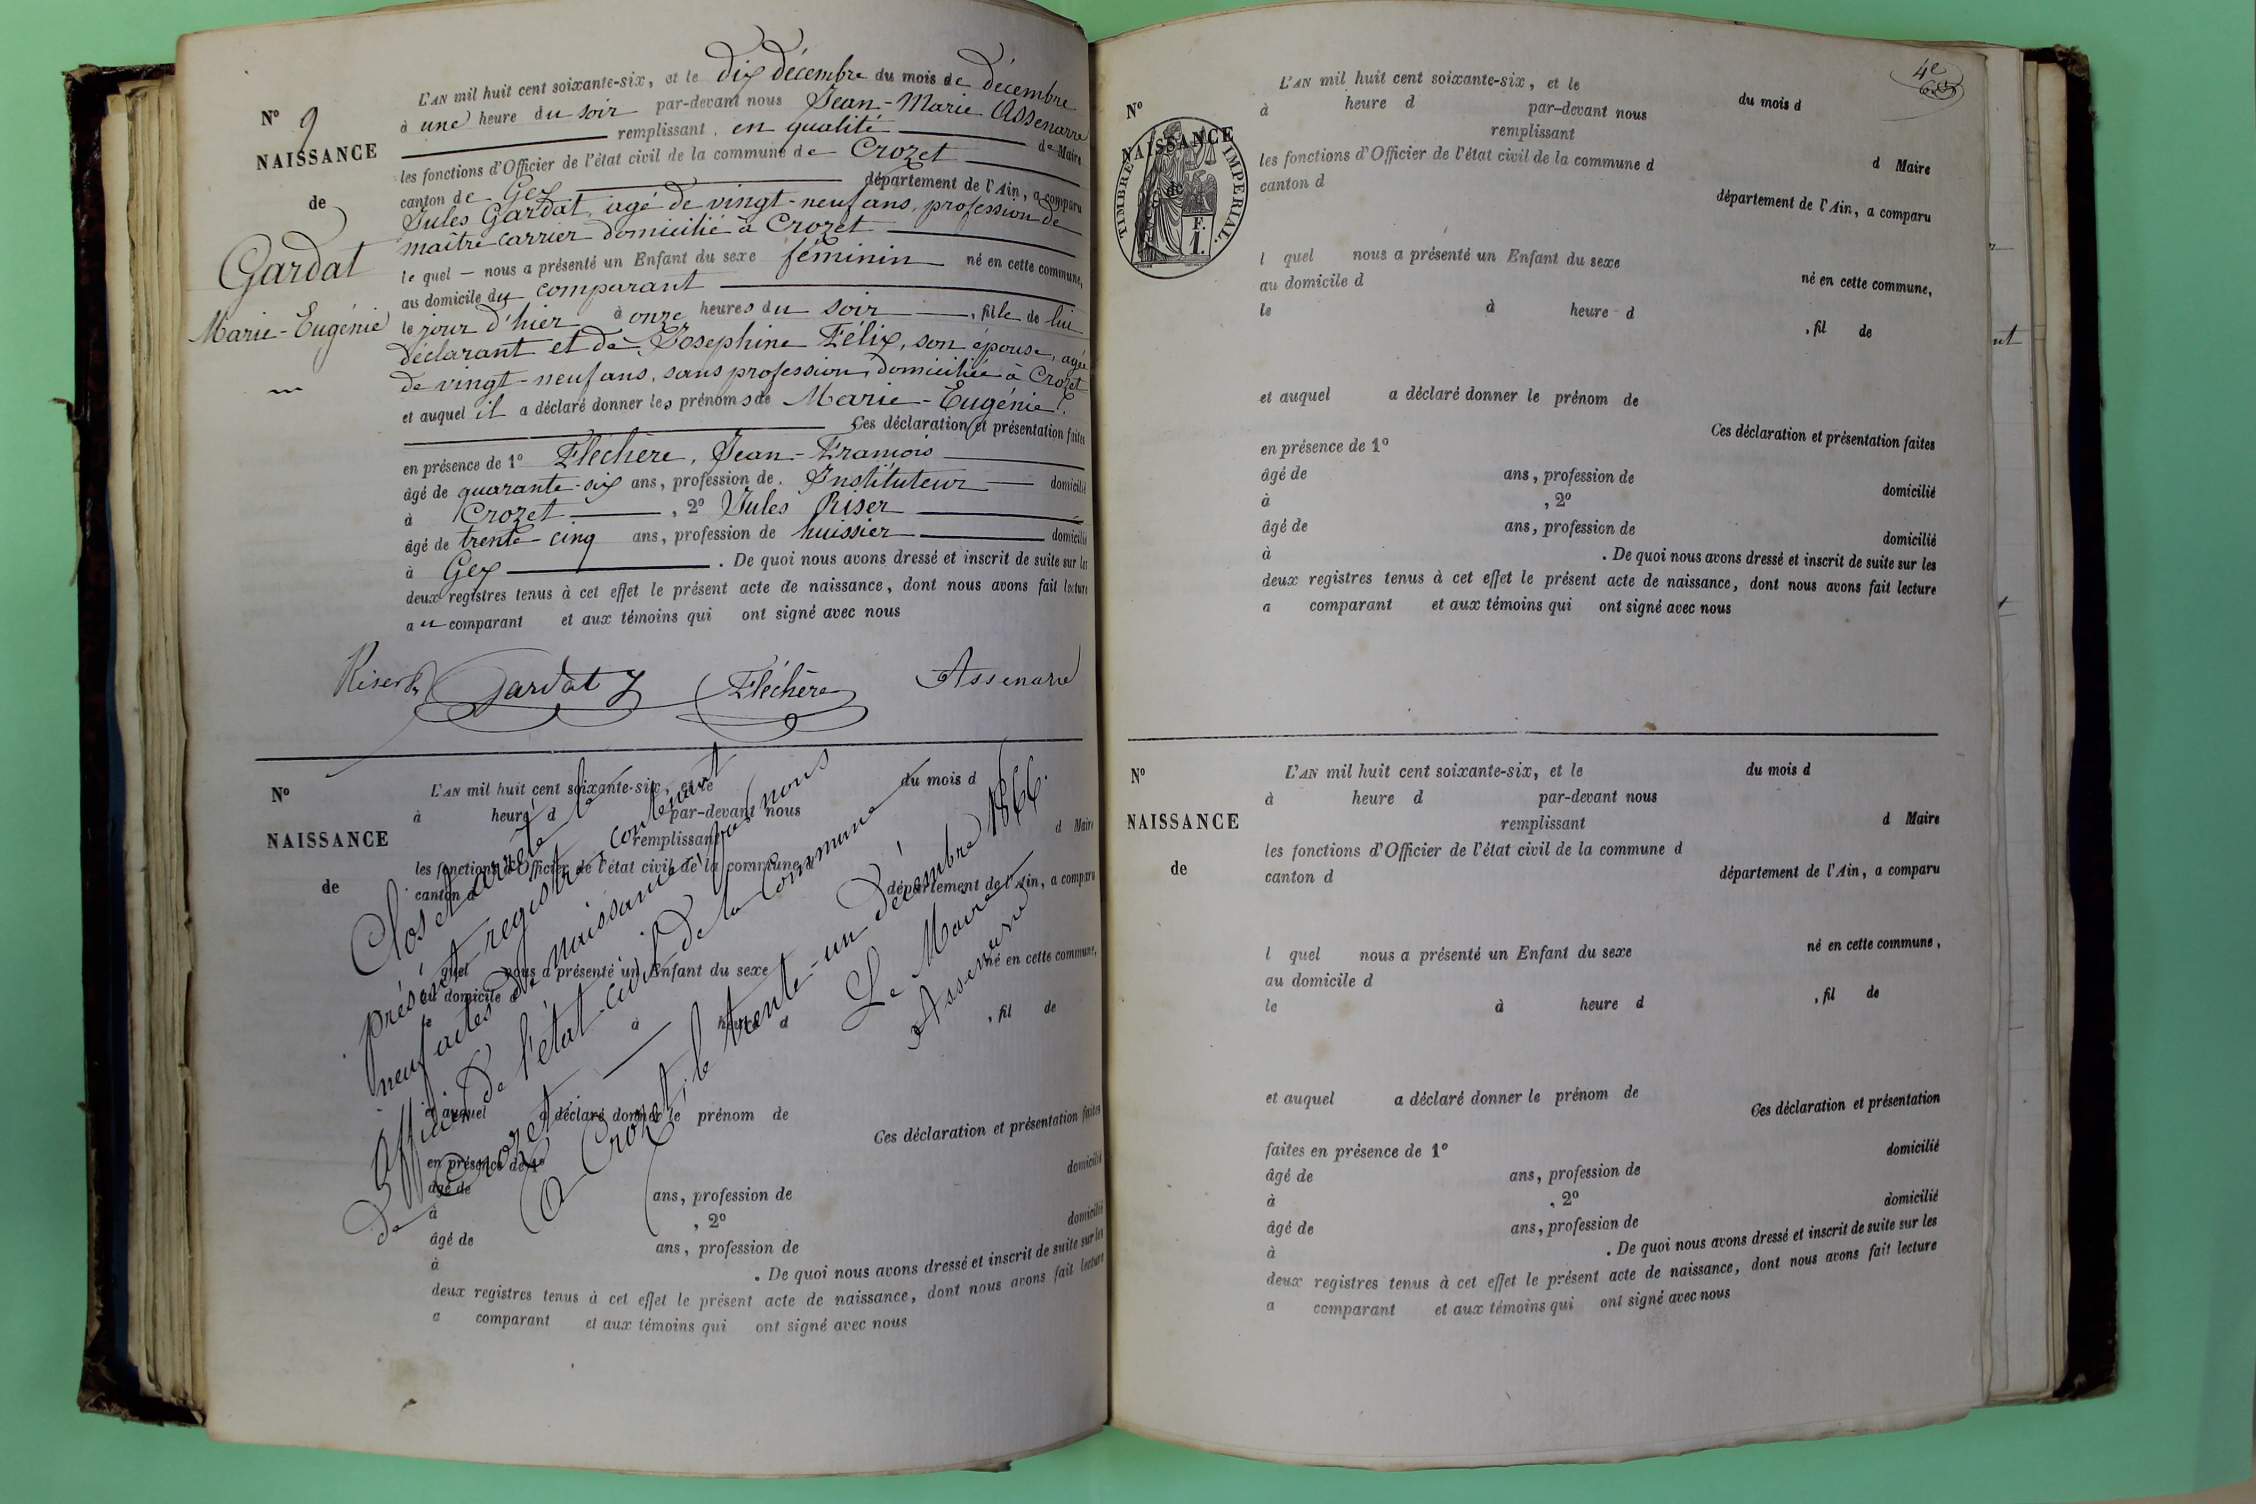 L'AN mil huit cent soixante-six, et le dix décembre du mois de décembre
à une heure du soir par-devant nous Jean-Marie Assenarre
remplissant, en qualité de Maire
les fonctions d'Officier de l'état civil de la commune de Crozet
canton de Gex département de l'Ain, a comparu
Jules Gardat, agé de vingt-neuf ans, profession de
maître carrier domicilié à Crozet
le quel nous a présenté un Enfant du sexe féminin né en cette commune,
au domicile du comparant
le jour d'hier à onze heures du soir, fille de lui
déclarant et de Josephine Félix, son épouse, agée
de vingt-neuf ans, sans profession, domiciliée à Crozet
et auquel il a déclaré donner les prénoms de Marie-Eugénie.
Ces déclaration et présentation faites
en présence de 1° Fléchère, Jean-François
âgé de quarante-six ans, profession de Instituteur domicilié
à Crozet, 2° Jules Riser
âgé de trente cinq ans, profession de huissier domicilié
à Gex. De quoi nous avons dressé et inscrit de suite sur les
deux registres tenus à cet effet le présent acte de naissance, dont nous avons fait lecture
au comparant et aux témoins qui ont signé avec nous
N° 9
NAISSANCE
de
Gardat
Marie-Eugénie
Riser Gardat J Fléchère Assenarre
N°
NAISSANCE
de
L'AN mil huit cent soixante-six, et le du mois d
à heure d par-devant nous
remplissant d Maire
les fonctions d'Officier de l'état civil de la commune d
canton d département de l'Ain, a comparu
quel nous a présenté un Enfant du sexe né en cette commune,
au domicile d
le à heure d , fil de
et auquel a déclaré donner le prénom de
Ces déclaration et présentation faites
en présence de 1°
âgé de ans, profession de domicilié
à , 2°
âgé de ans, profession de domicilié
à . De quoi nous avons dressé et inscrit de suite sur les
deux registres tenus à cet effet le présent acte de naissance, dont nous avons fait lecture
a comparant et aux témoins qui ont signé avec nous
Clos et arrêté le
présent registre, contenant
neuf actes de naissance par nous
officier de l'état-civil de la Commune
de Crozet
A Crozet, le trente-un décembre 1866.
Le Maire
Assenarre
4e
N°
NAISSANCE
de
TIMBRE IMPERIAL.
F.
1.
L'AN mil huit cent soixante-six, et le du mois d
à heure d par-devant nous
remplissant d Maire
les fonctions d'Officier de l'état civil de la commune d
canton d département de l'Ain, a comparu
l quel nous a présenté un Enfant du sexe né en cette commune,
au domicile d
le à heure d , fil de
et auquel a déclaré donner le prénom de
Ces déclaration et présentation faites
en présence de 1°
âgé de ans, profession de domicilié
à , 2°
âgé de ans, profession de domicilié
à . De quoi nous avons dressé et inscrit de suite sur les
deux registres tenus à cet effet le présent acte de naissance, dont nous avons fait lecture
a comparant et aux témoins qui ont signé avec nous
N°
NAISSANCE
de
L'AN mil huit cent soixante-six, et le du mois d
à heure d par-devant nous
remplissant d Maire
les fonctions d'Officier de l'état civil de la commune d
canton d département de l'Ain, a comparu
l quel nous a présenté un Enfant du sexe né en cette commune,
au domicile d
le à heure d , fil de
et auquel a déclaré donner le prénom de
Ces déclaration et présentation
faites en présence de 1° domicilié
âgé de ans, profession de
à , 2° domicilié
âgé de ans, profession de
à . De quoi nous avons dressé et inscrit de suite sur les
deux registres tenus à cet effet le présent acte de naissance, dont nous avons fait lecture
a comparant et aux témoins qui ont signé avec nous